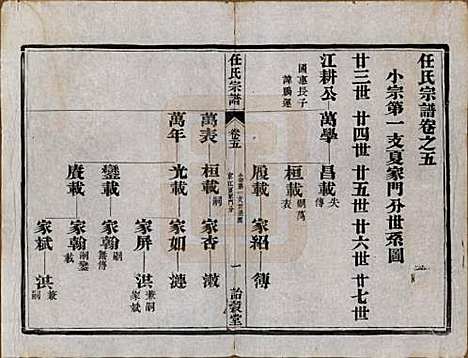 任氏宗譜卷之五
小宗第一支夏家門分世系圖
廿三世 廿四世 廿五世 廿六世 廿七世
江耕公 萬學 昌載 失傳
國惠長子
諱鵬運
桓載 嗣萬表
殷載 家紹 傳
任氏宗譜
卷五
一
詒穀堂
萬表 桓載 嗣 家杏 澂
萬年 光載 家如 漣
家屏 淇 兼嗣家斌
鑾載 家翰 嗣
賡載 家翰 嗣鑾載
家斌 淇 兼嗣